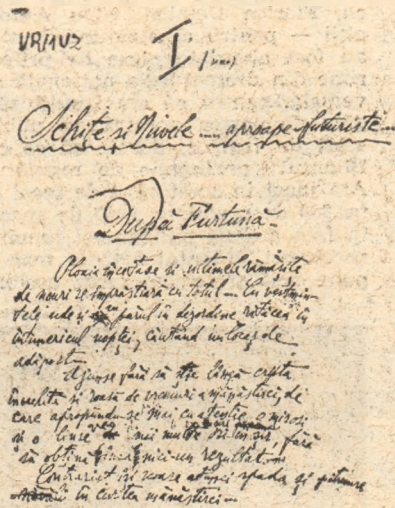 VR/1V2
I
(unu)
Schițe și Nuvele .... aproape futuriste...
După Furtună.
Ploaia încetase și ultimele rămășițe
de nouri se împrăștiară cu totul... Cu veștmin-
tele ude și părul în dezordine rătăcea în
întunericul nopții, căutând un locaș de
adăpost...
Ajunse fără să știe lângă cripta
învechită și roasă de vremuri a mănăstirei, de
care apropiindu-se mai cu atenție, o mirosi
și o linse ori în șir, fără
să obțină nici-un rezultat...
Contrariat își scoase atunci spada și pătrunse
în curtea mănăstirei...